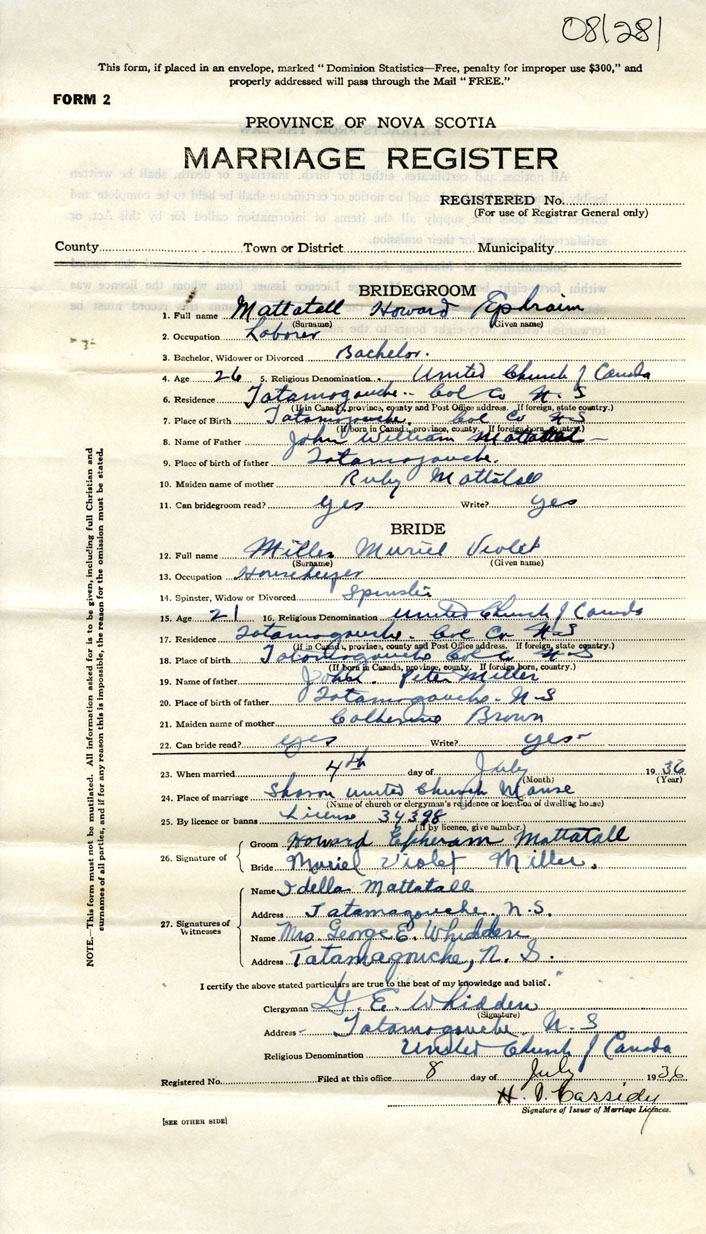 081281
This form, if placed in an envelope, marked "Dominion Statistics—Free, penalty for improper use $300," and
properly addressed will pass through the Mail "FREE."
FORM 2
PROVINCE OF NOVA SCOTIA
MARRIAGE REGISTER
REGISTERED No.
(For use of Registrar General only)
County Town or District Municipality
BRIDEGROOM
1. Full name Mattatall Howard Ephraim
(Surname) (Given name)
2. Occupation Laborer
3. Bachelor, Widower or Divorced Bachelor.
4. Age 26 5. Religious Denomination United Church of Canada
6. Residence Tatamagouche Col Co N-S
(If in Canada, province, county and Post Office address. If foreign, state country.)
7. Place of Birth Tatamagouche. Col Co N-S
(If born in Canada, province, county. If foreign born, country.)
8. Name of Father John William Mattatal
9. Place of birth of father Tatamagouche.
10. Maiden name of mother Ruby Mattatall
11. Can bridegroom read? yes Write? yes
BRIDE
12. Full name Miller Muriel Violet
(Surname) (Given name)
13. Occupation Housekeeper
14. Spinster, Widow or Divorced Spinster
15. Age 21 16. Religious Denomination United Church of Canada
17. Residence Tatamagouche. Col Co N-S
(If in Canada, province, county and Post Office address. If foreign, state country.)
18. Place of birth Tatamagouche Col Co N-S
(If born in Canada, province, county. If foreign born, country.)
19. Name of father Peter Miller
20. Place of birth of father Tatamagouche. N-S
21. Maiden name of mother Catherine Brown
22. Can bride read? yes Write? yes
23. When married 4th day of July 1936
(Month) (Year)
24. Place of marriage Sharon United Church Manse
(Name of church or clergyman's residence or location of dwelling house)
25. By licence or banns License 34398
(If by licence, give number)
26. Signature of
Groom Howard Ephraim Mattatall
Bride Muriel Violet Miller.
27. Signatures of Witnesses
Name Idella Mattatall
Address Tatamagouche, N.S.
Name Mrs. George E. Whidden
Address Tatamagouche, N. S.
I certify the above stated particulars are true to the best of my knowledge and belief.
Clergyman G. E. Whidden
(Signature)
Address Tatamagouche. N-S
Religious Denomination United Church of Canada
Registered No. Filed at this office 8 day of July 1936
H. D. Cassidy
Signature of Issuer of Marriage Licences.
[SEE OTHER SIDE]
NOTE.—This form must not be mutilated. All information asked for is to be given, including full Christian and
surnames of all parties, and if for any reason this is impossible, the reason for the omission must be stated.